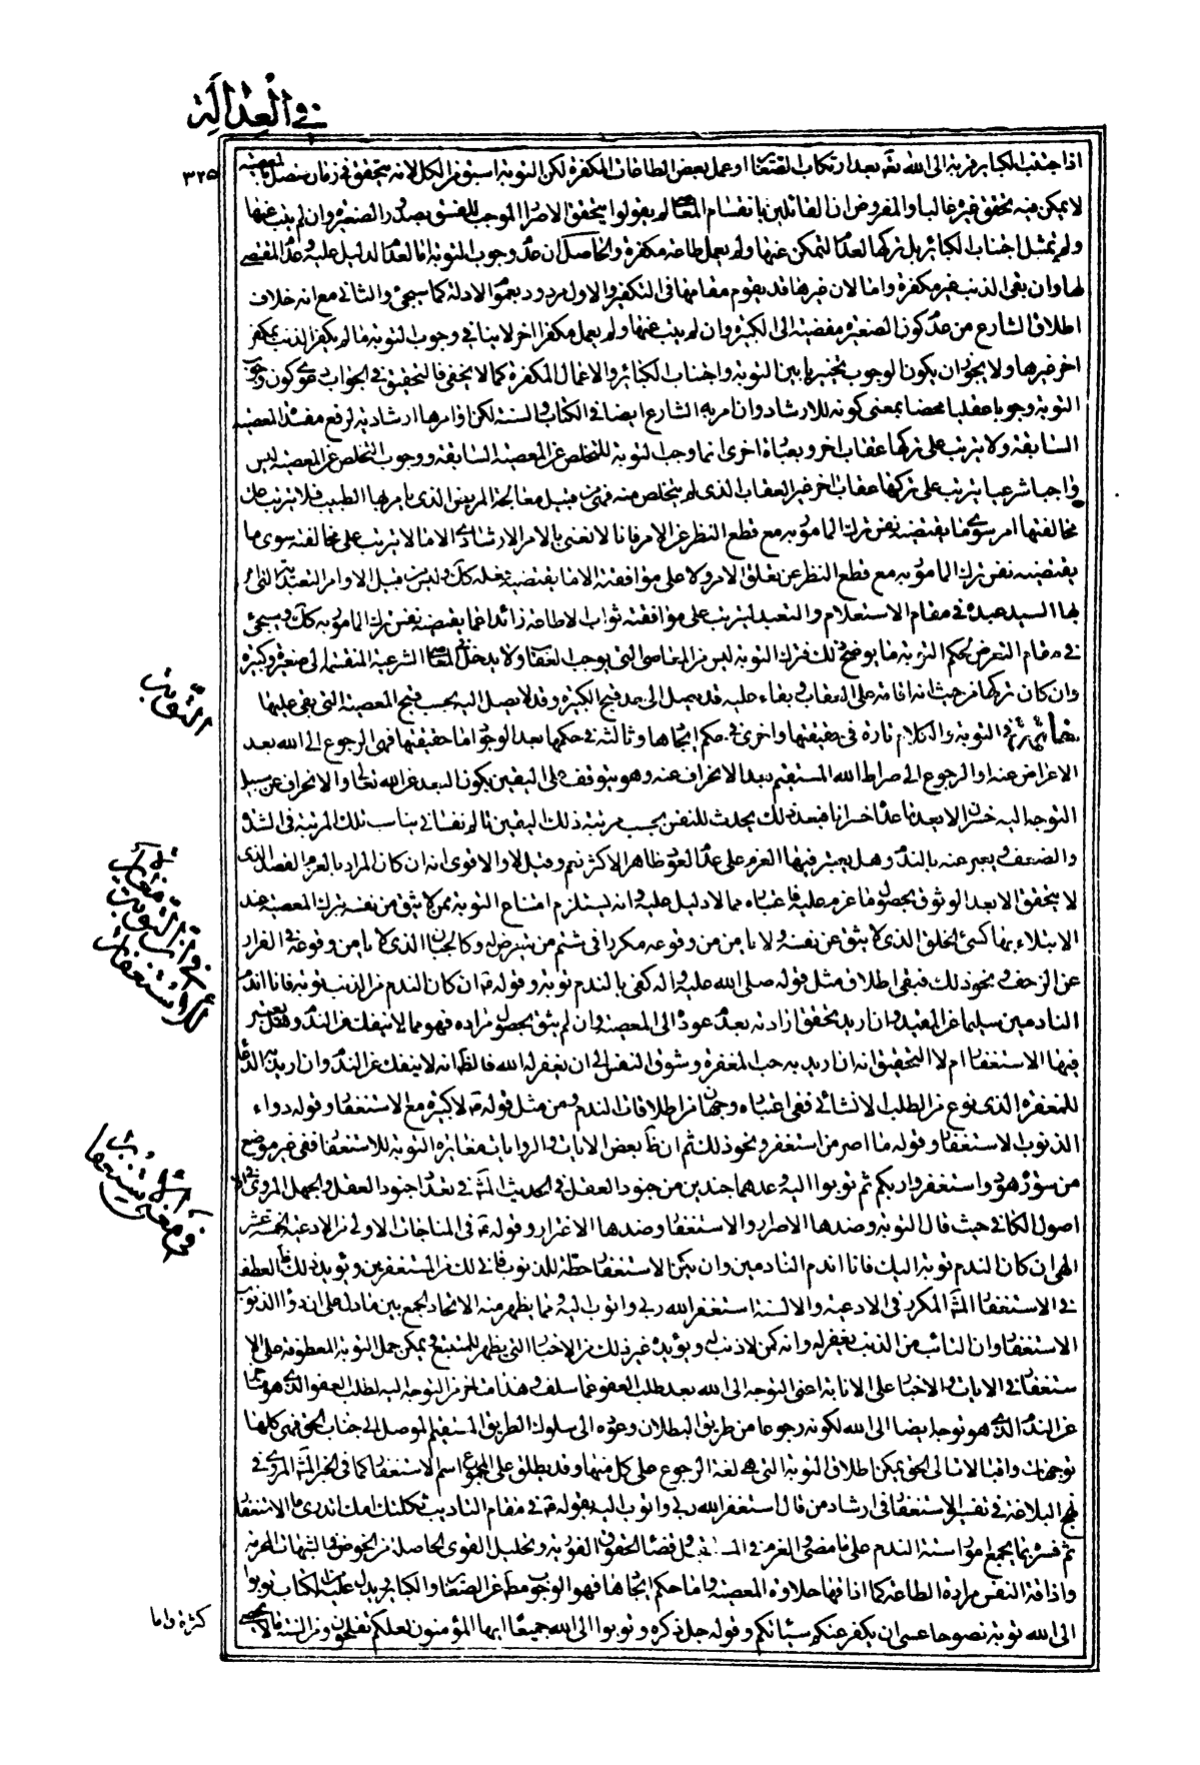 في العدالة
٣٢٥
اذا اجتنب الكباير قربة الى الله تعم بعد ارتكاب الصغيرة او عمل بعض الطاعات المكفرة لكن التوبة اسبق من الكل لانه يتحقق في زمان متصل بالمعصية
لا يمكن فيه تحقق غيره غالبا والمفروض ان القائلين بانقسام المعاصي لم يقولوا بتحقق الاصرار الموجب للفسق بصدور الصغيرة وان لم يتب عنها
ولم يتمثل اجتناب الكباير بل تركها لعدم التمكن عنها ولم يعمل طاعة مكفرة والحاصل ان عدم وجوب التوبة اما لعدم الدليل عليه وعدم المقتضي
لها وان بقى الذنب غير مكفرة واما لان غيرها قد يقوم مقامها في التكفير والاول مردود بعموم الادلة كما سيجئ والثاني مع انه خلاف
اطلاق الشارع من عدم كون الصغيرة مفضية الى الكبيرة وان لم يتب عنها ولم يعمل مكفرا اخر لا ينافي وجوب التوبة ما لم يكفر الذنب بمكفر
اخر غيرها ولا يجوز ان يكون الوجوب تخييريا بين التوبة واجتناب الكباير والاعمال المكفرة كما لا يخفى فالتحقيق في الجواب هو كون وجوب
التوبة وجوبا عقليا محضا بمعنى كونه للارشاد وان امر به الشارع ايضا في الكتاب والسنة لكن اوامرها ارشادية لرفع مفسدة المعصية
السابقة ولا يترتب على تركها عقاب اخر وبعبارة اخرى انما وجب التوبة للتخلص عن المعصية السابقة ووجوب التخلص عن المعصية ليس
واجبا شرعيا يترتب على تركها عقاب اخر غير العقاب الذي لم يتخلص منه فهي من قبيل معالجة المريض الذي يامر بها الطبيب فلا يترتب على
مخالفتها امر سوى ما يقتضيه نفس ترك المامور به مع قطع النظر عن الامر فانا لا نعنى بالامر الارشادي الا ما لا يترتب على مخالفته سوى ما
يقتضيه نفس ترك المامور به مع قطع النظر عن تعلق الامر ولا على موافقته الا ما يقتضيه فعله كك وليس من قبيل الاوامر التعبدية التي امر
بها السيد عبده في مقام الاستعلام والتعبد ليترتب على موافقته ثواب الاطاعة زائدا عما يقتضيه نفس ترك المامور به كك وسيجئ
في مقام التعرض لحكم التوبة ما يوضح ذلك فترك التوبة ليس من المعاصي التي يوجب العقاب ولا يدخل في المعاصي الشرعية المنقسمة الى صغيرة وكبيرة
وان كان تركها من حيث انه اقامة على العقاب وبقاء عليه قد يصل الى حد قبح الكبيرة وقد لا يصل اليه بحسب قبح المعصية التي بقي عليها
في التوبة والكلام تارة في حقيقتها واخرى في حكم ايجابها وثالثة في حكمها بعد الوجود اما حقيقتها فهي الرجوع الى الله بعد
الاعراض عنه او الرجوع الى صراط الله المستقيم بعد الانحراف عنه وهو يتوقف على اليقين بكون البعد عن الله تعالى والانحراف عن سبيل
التوجه اليه خسرانا لا يعد ما عداه خسرانا فبعد ذلك يحدث للنفس بحسب مرتبة ذلك اليقين تالم نفساني يناسب تلك المرتبة في الشدة
والضعف ويعبر عنه بالندم وهل يعتبر فيها العزم على عدم العود ظاهر الاكثر نعم وقيل لا والاقوى انه ان كان المراد بالعزم القصد الذي
لا يتحقق الا بعد الوثوق بحصول ما عزم عليه فاعتباره مما لا دليل عليه مع انه يستلزم امتناع التوبة ممن لا يثق من نفسه بترك المعصية عند
الابتلاء بها كسيئ الخلق الذي لا يثق عن نفسه ولا يامن من وقوعه مكررا في شتم من يتعرض له وكالجبان الذي لا يامن وقوعه في الفرار
عن الزحف ونحو ذلك فيبقى اطلاق مثل قوله صلى الله عليه واله كفى بالندم توبة وقوله ع ان كان الندم من الذنب توبة فانا اندم
النادمين سليما عن المقيد وان اريد تحقق ارادته بعدم عوده الى المعصية وان لم يثق بحصول مراده فهو مما لا ينفك عن الندم وهل يعتبر
فيها الاستغفار ام لا التحقيق انه ان اريد به حب المغفرة وشوق النفس الى ان يغفر له الله فالظ انه لا ينفك عن الندم وان اريد به الدعاء
للمغفرة الذي نوع من الطلب الانشائي ففي اعتباره وجهان من اطلاقات الندم ومن مثل قوله ع لا كبيرة مع الاستغفار وقوله دواء
الذنوب الاستغفار وقوله ما اصر من استغفر ونحو ذلك ثم ان ظ بعض الايات والروايات مغايرة التوبة للاستغفار ففي غير موضع
من سورة هود واستغفروا ربكم ثم توبوا اليه وعدهما جندين من جنود العقل في الحديث المشهور في تعداد جنود العقل والجهل المروى في
اصول الكافي حيث قال التوبة وضدها الاصرار والاستغفار وضدها الاغترار وقوله ع في المناجات الاولى من الادعية الخمسة عشر
الهى ان كان الندم توبة اليك فانا اندم النادمين وان يكن الاستغفار حطة للذنوب فاني لك من المستغفرين ويؤيد ذلك ظ العطف
في الاستغفار المشهور المكرر في الادعية والالسنة استغفر الله ربي واتوب اليه ومما يظهر منه الاتحاد الجمع بين ما دل على ان دواء الذنوب
الاستغفار وان التائب من الذنب يغفر له وانه كمن لا ذنب له ويؤيده غير ذلك من الاخبار التي يظهر للمتتبع ويمكن حمل التوبة المعطوفة على الا
ستغفار في الايات والاخبار على الانابة اعنى التوجه الى الله بعد طلب العفو عما سلف وهذا متاخر عن التوجه اليه لطلب العفو الذي هو متاخر
عن الندم الذي هو توجه ايضا الى الله لكونه رجوعا من طريق البطلان وعوده الى سلوك الطريق المستقيم الموصل الى جناب الحق فهى كلها
توجهات واقبالات الى الحق يمكن اطلاق التوبة التي هي لغة الرجوع على كل منها وقد يطلق على المجموع اسم الاستغفار كما في الخبر المشهور المروى في
نهج البلاغة في تفسير الاستغفار في ارشاد من قال استغفر الله ربي واتوب اليه بقوله ع في مقام التاديب ثكلتك امك اتدرى ما الاستغفار
ثم فسره بما يجمع امورا ستة الندم على ما مضى والعزم في المستقبل وقضاء الحقوق الفوتية وتحليل القوى الحاصلة من الخوض في الشبهات المحرمة
واذاقة النفس مرارة الطاعة كما اذاقها حلاوة المعصية واما حكم ايجابها فهو الوجوب مط عن الصغاير والكباير يدل عليه الكتاب توبوا
الى الله توبة نصوحا عسى ان يكفر عنكم سيئاتكم وقوله جل ذكره وتوبوا الى الله جميعا ايها المؤمنون لعلكم تفلحون ومن السنة ما لا يحصى
التوبة
في ان التوبة
للاستغفار
كثرة واما